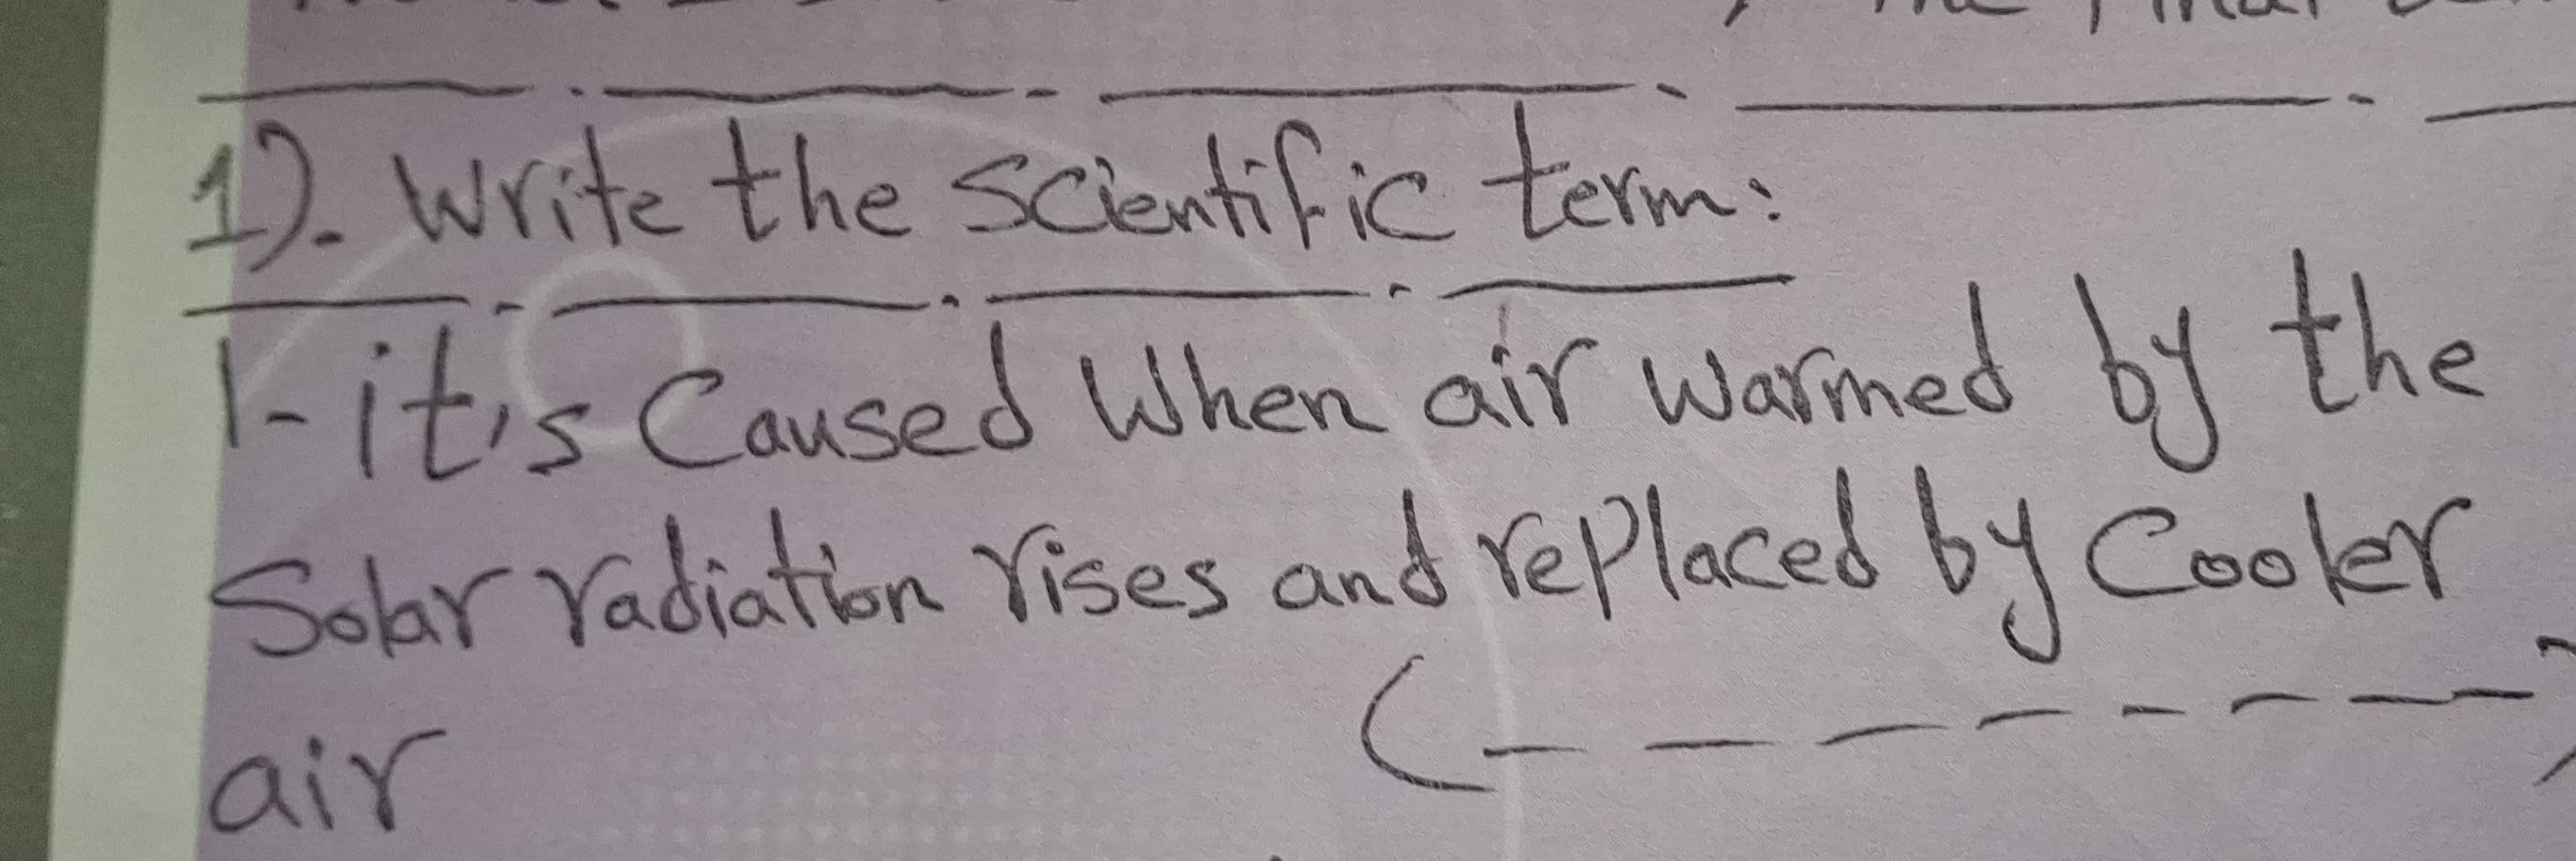 1). Write the scientific term:
1- it's Caused When air warmed by the
Solar radiation rises and replaced by Cooler
air (- - - - - - -)